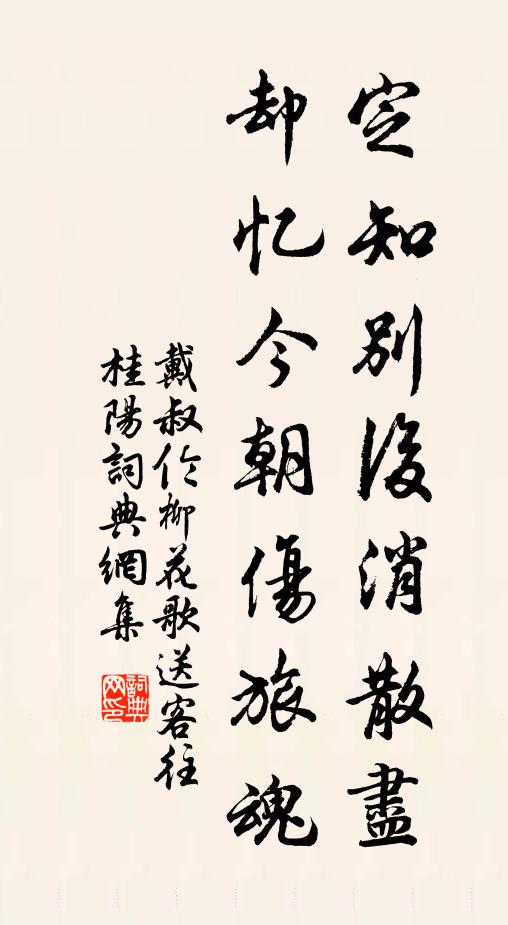 定知別後消散盡
却忆今朝傷旅魂
戴叔伦柳花歌送客往
桂陽詞典網集
詞典网印